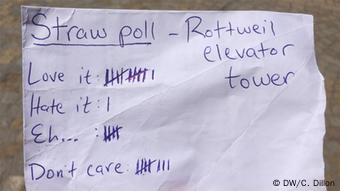 Straw poll - Rottweil
elevator
tower
Love it: 卌 卌 I
Hate it: I
Eh... : 卌
Don't care: 卌 III
© DW/C. Dillon